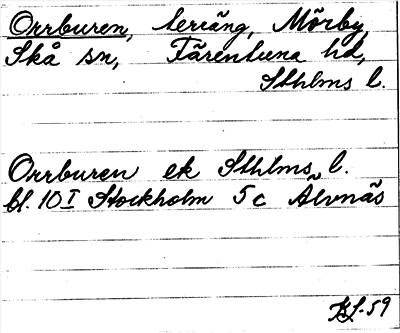 Orrburen, terräng, Mörby,
Skå sn, Färentuna hd,
Sthlms l.
Orrburen ek Sthlms l.
bl. 10 I Stockholm 5c Älvnäs
-59